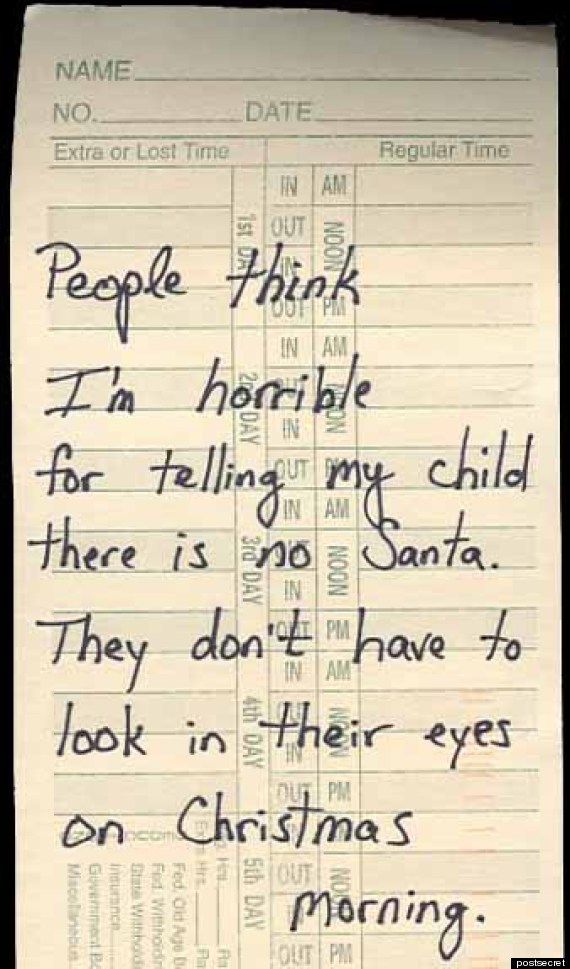 NAME
NO. DATE
Extra or Lost Time Regular Time
People think
I'm horrible
for telling my child
there is no Santa.
They don't have to
look in their eyes
on Christmas
morning.
1st DAY
IN AM
OUT NOON
IN
OUT PM
2nd DAY
IN AM
OUT NOON
IN
OUT PM
3rd DAY
IN AM
OUT NOON
IN
OUT PM
4th DAY
IN AM
OUT NOON
IN
OUT PM
5th DAY
IN
OUT NOON
IN
OUT PM
Hrs.
Hrs.
Fed. Old Age
Fed. Withholding
State Withholding
Insurance
Government
Miscellaneous
postsecret